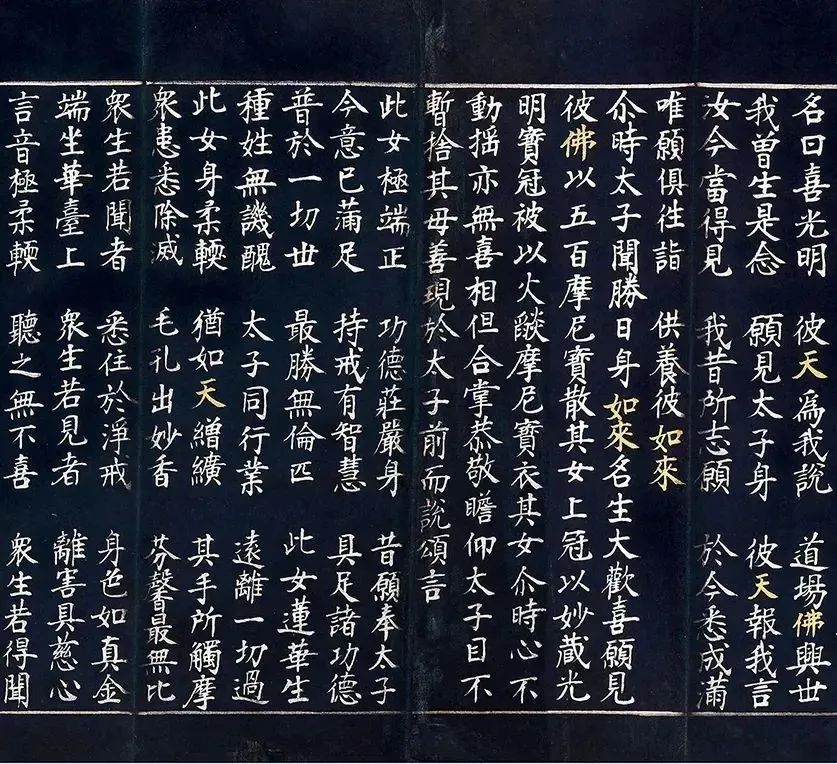 名曰喜光明　彼天為我說　道場佛興世
我曾生是念　願見太子身　彼天報我言
汝今當得見　我昔所志願　於今悉成滿
唯願俱徃詣　供養彼如來
尒時太子聞勝日身如來名生大歡喜願見
彼佛以五百摩尼寶散其女上冠以妙藏光
明寶冠被以火燄摩尼寶衣其女尒時心不
動搖亦無喜相但合掌恭敬瞻仰太子目不
暫捨其母善現於太子前而說頌言
此女極端正　功德莊嚴身　昔願奉太子
今意已蒲足　持戒有智慧　具足諸功德
普於一切世　最勝無倫匹　此女蓮華生
種姓無譏醜　太子同行業　遠離一切過
此女身柔輭　猶如天繒纊　其手所觸摩
衆患悉除滅　毛孔出妙香　芬馨最無比
衆生若聞者　悉住於淨戒　身色如真金
端坐華臺上　衆生若見者　離害具慈心
言音極柔輭　聽之無不喜　衆生若得聞